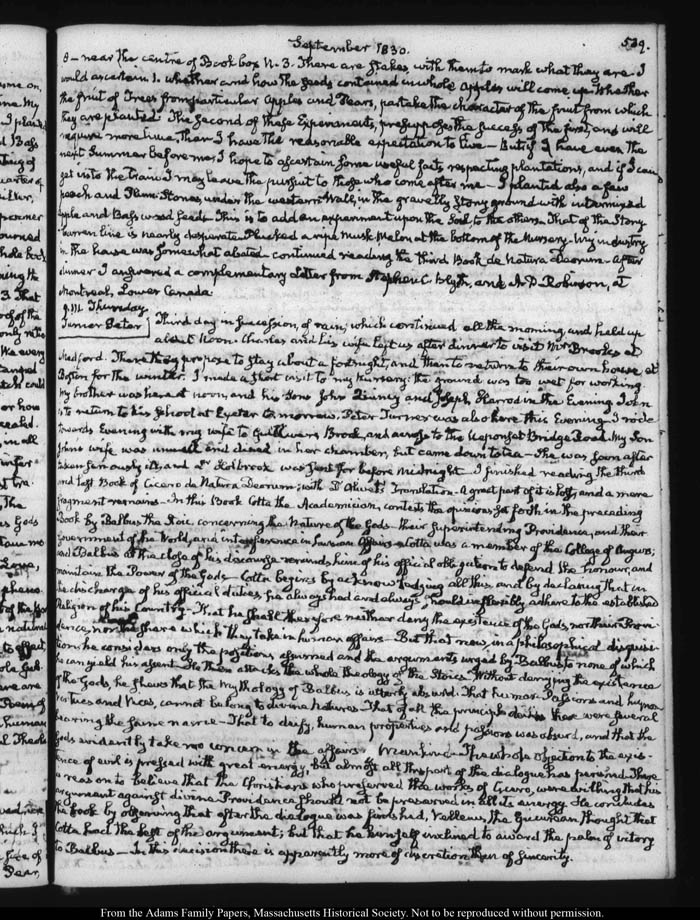 September 1830.
539.
8 – near the centre of Book box N. 3. There are stakes, with them to mark what they are. I
would ascertain 1. whether and how the seeds contained in whole apples will come up. Whether
the fruit of Trees from particular Apples and Pears, partake the character of the fruit from which
they are planted. The second of these Experiments, presupposes the success of the first, and will
require more time, than I have the reasonable expectation to live – But if I have even the
next Summer before me, I hope to ascertain some useful facts, respecting plantations, and if I can
get into the train I may leave the pursuit to those who come after me – I planted also a few
peach and Plum Stones, under the western Wall, in the gravelly stony ground with intermixed
apple and Basswood seeds. This is to add an experiment upon the Soil, to the others. That of the Stony
barren line is nearly desperate. Plucked a ripe Musk Melon at the bottom of the Nursery. My industry
in the house was somewhat abated – continued reading the third Book de Natura Deorum – After
dinner I answered a complementary Letter from Stephen C. Blyth, and A. P. Robinson, at
Montreal, Lower Canada.
9. III. Thursday.
Turner Peter
Third day in succession, of rain; which continued all the morning, and held up
about Noon. Charles and his wife left us after dinner to visit Mr Brooks at
Medford. There they propose to stay about a fortnight, and then to return to their own house at
Boston for the winter. I made a short visit to my Nursery; the ground was too wet for working.
My brother was here at noon, and his Sons John Quincy and Joseph Harrod in the Evening. John
is to return to his School at Exeter tomorrow. Peter Turner was also here this Evening. I rode
towards Evening with my wife to Quilwuers Brook, and across to the Neponset Bridge Road. My Son
John's wife was unwell and dined in her chamber, but came down to tea – She was soon after
taken seriously ill, and Dr Holbrook was sent for before midnight – I finished reading the third
and last Book of Cicero de Natura Deorum; with D'Olivet's Translation. A great part of it is lost, and a mere
fragment remains – In this Book Cotta the Academician, contests the opinions set forth in the preceding
Book by Balbus the Stoic concerning the Nature of the Gods – their superintending Providence, and their
Government of the World, and interference in human Affairs – Cotta was a member of the College of Augurs;
and Balbus at the close of his discourse reminds him of his official obligation to defend the honour, and
maintain the Power of the Gods – Cotta begins by acknowledging all this, and by declaring that in
the discharge of his official duties, he always had and always should inflexibly adhere to the established
Religion of his Country – That he shall therefore neither deny the existence of the Gods, nor their Provi-
dence, nor the share which they take in human affairs – But that now, in a philosophical disquisi-
tion, he considers only the positions assumed and the arguments urged by Balbus, to none of which
he can yield his assent. He then attacks the whole theology of the Stoics. Without denying the existence
of the Gods, he shews that the mythology of Balbus is utterly absurd. That human Passions and human
virtues and Vices, cannot belong to divine Natures – That of all the principle deities there were several
bearing the same name – That to deify, human properties and passions was absurd, and that the
Gods evidently take no concern in the affairs of Mankind – The whole objection to the exis-
tence of evil is pressed with great energy, but almost all this part of the dialogue has perished. There
is reason to believe that the Christians who preserved the works of Cicero, were willing that his
argument against divine Providence should not be preserved in all its energy. He concludes
the book by observing that after the dialogue was finished, Velleius, the Epicurean thought that
Cotta had the best of the argument; but that he himself inclined to award the palm of victory
to Balbus – In this decision there is apparently more of discretion than of sincerity.
From the Adams Family Papers, Massachusetts Historical Society. Not to be reproduced without permission.